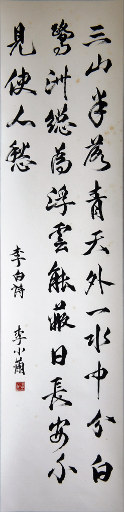 三山半落青天外一水中分白
鹭洲総為浮雲能蔽日長安不
見使人愁
李白詩
李小蘭